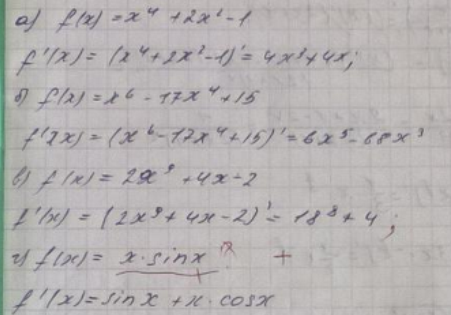 а) f(x) = x⁴ + 2x² - 1
f'(x) = (x⁴ + 2x² - 1)' = 4x³ + 4x;
б) f(x) = x⁶ - 17x⁴ + 15
f'(x) = (x⁶ - 17x⁴ + 15)' = 6x⁵ - 68x³
в) f(x) = 2x⁹ + 4x - 2
f'(x) = (2x⁹ + 4x - 2)' = 18⁸ + 4;
г) f(x) = x · sinx +
f'(x) = sinx + x · cosx